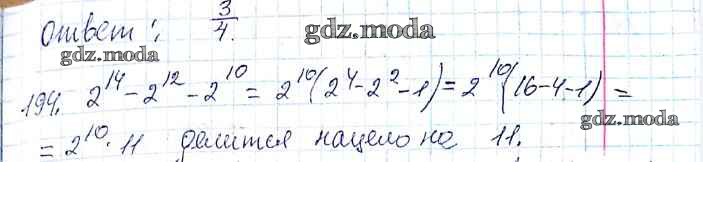 Ответ: 3/4.
gdz.moda
gdz.moda
194. 2^14 - 2^12 - 2^10 = 2^10(2^4 - 2^2 - 1) = 2^10(16-4-1) =
gdz.moda
= 2^10 · 11 делится нацело на 11.
gdz.moda